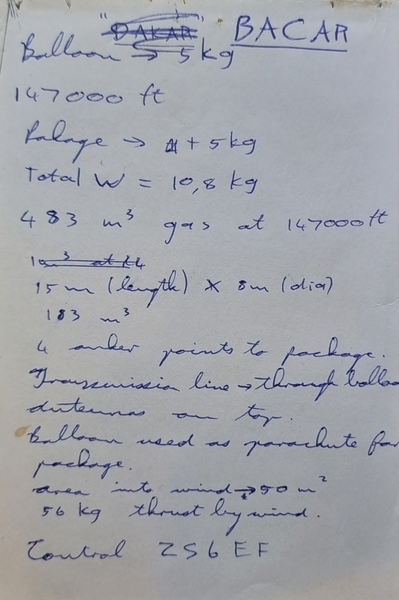 "DAKAR" BACAR
Balloon → 5 kg
147000 ft
Pakage → + 5 kg
Total W = 10,8 kg
483 m³ gas at 147000 ft
15 m (length) × 8m (dia)
183 m³
4 anker points to package.
Transmission line → through balloo
antennas on top.
Balloon used as parachute for
package.
area into wind → 50 m²
56 kg thrust by wind.
Control ZS6EF